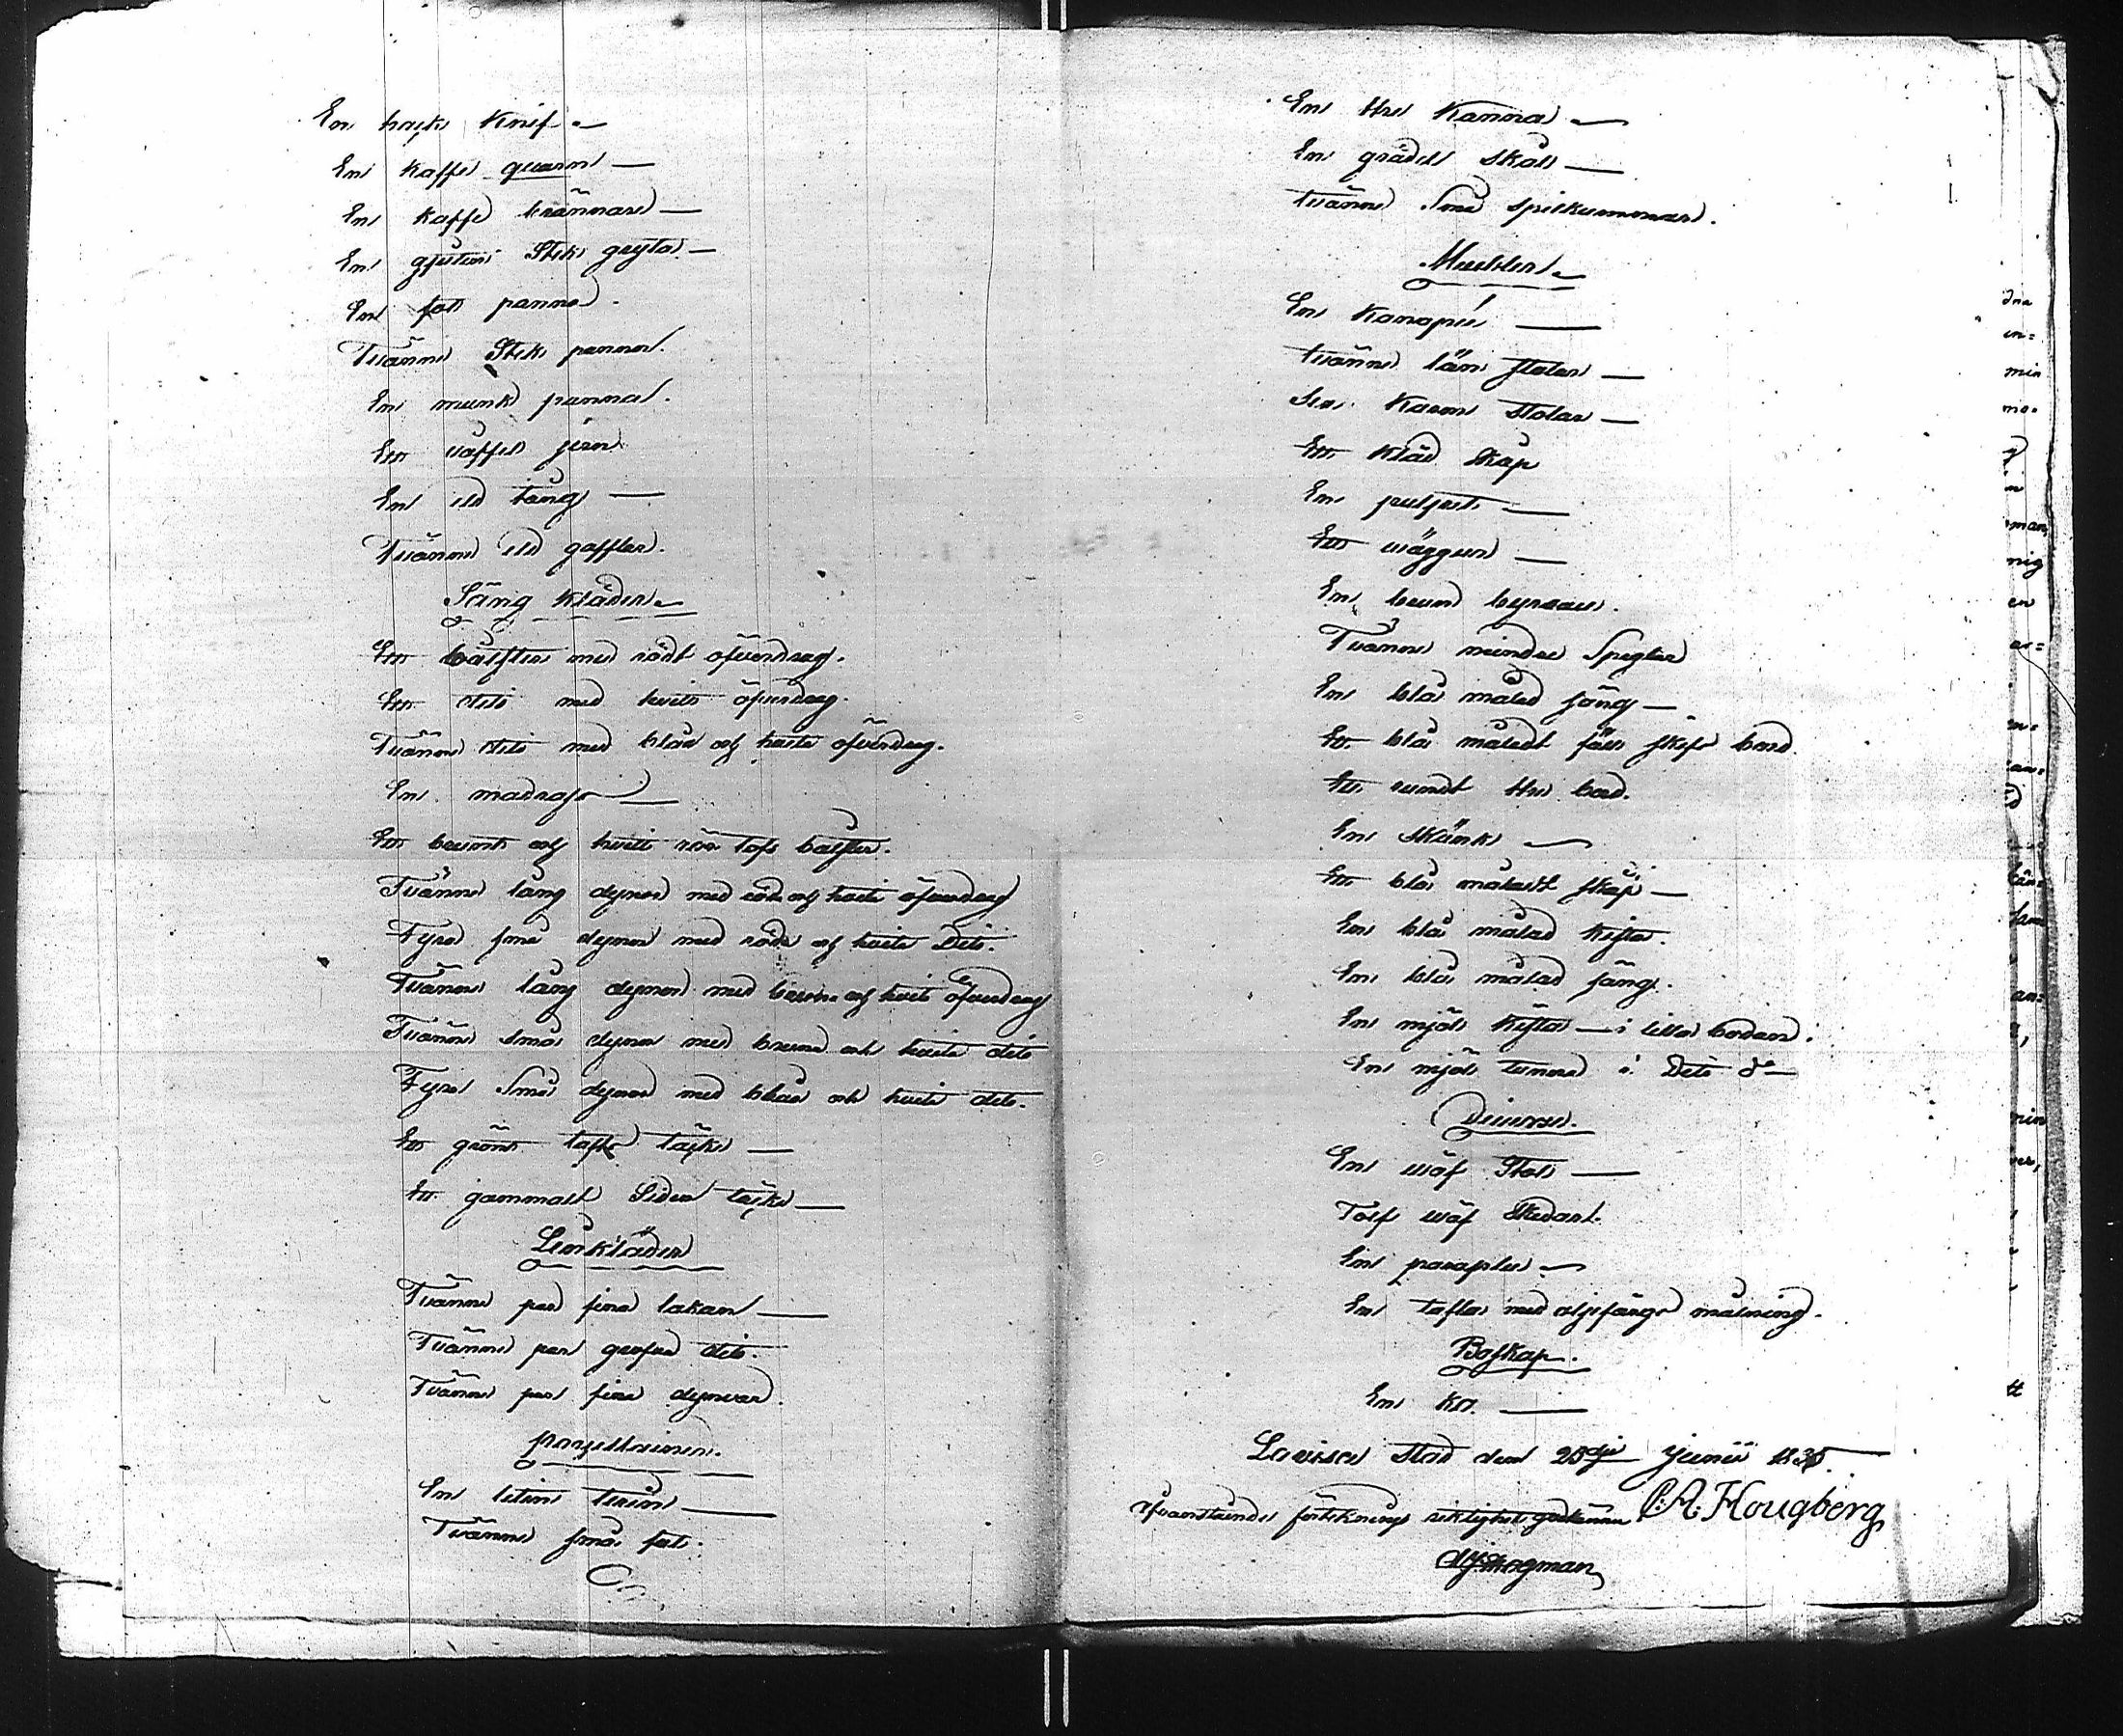 En hack Knif
En kaffe quarn
En kaffe brännare
En gjuten Stek gryta
En fat panna.
Tvänne Stek pannor.
En munk panna.
Ett våffel jern
En eld tång
Tvänne eld gafflar.
Säng kläder
Ett bålster med rödt öfverdrag.
Ett dito med hvitt öfverdrag.
Tvänne dito med blåa och hvita öfverdrag.
En madrass
Ett brunt och hvitt bålster.
Tvänne lång dynor med röda och hvita öfverdrag
Fyra små dynor med röda och hvita Dito.
Tvänne lång dynor med bruna och hvita öfverdrag
Tvänne små dynor med bruna och hvita dito
Fyra Små dynor med blåa och hvita dito.
Ett grönt taft täcke
Ett gammalt Siden täcke
Linkläder
Tvänne par fina lakan
Tvänne par grofva dito.
Tvänne par fina dynvar.
porzellainer.
En liten terin
Tvänne små fat.
En the Kanna
En grädd skål
tvänne Små spilkummar.
Meubler
En Kanapée
tvänne län stolar
Sex Karm stolar
Ett Kläd Skåp
En pulpet
Ett väggur
En brun byraau.
Tvänne mindre Speglar
En blå målad säng
Ett blå måladt fäll skifs bord.
Ett rundt the bord.
En Skänk
Ett blå måladt skåp
En blå målad kista.
En blå målad säng.
En mjöl kista i lilla bodan.
En mjöl tunna i Dito do
Diverse.
En väf Stol
Tolf väf Skedar.
En paraplue
En tafla med oljefärgs målning.
Boskap.
En ko.
Lovisa Stad den 25dje Junii 1835.
ofvanstående förteknings riktighet godkänna C: A: Hougberg
Bergman